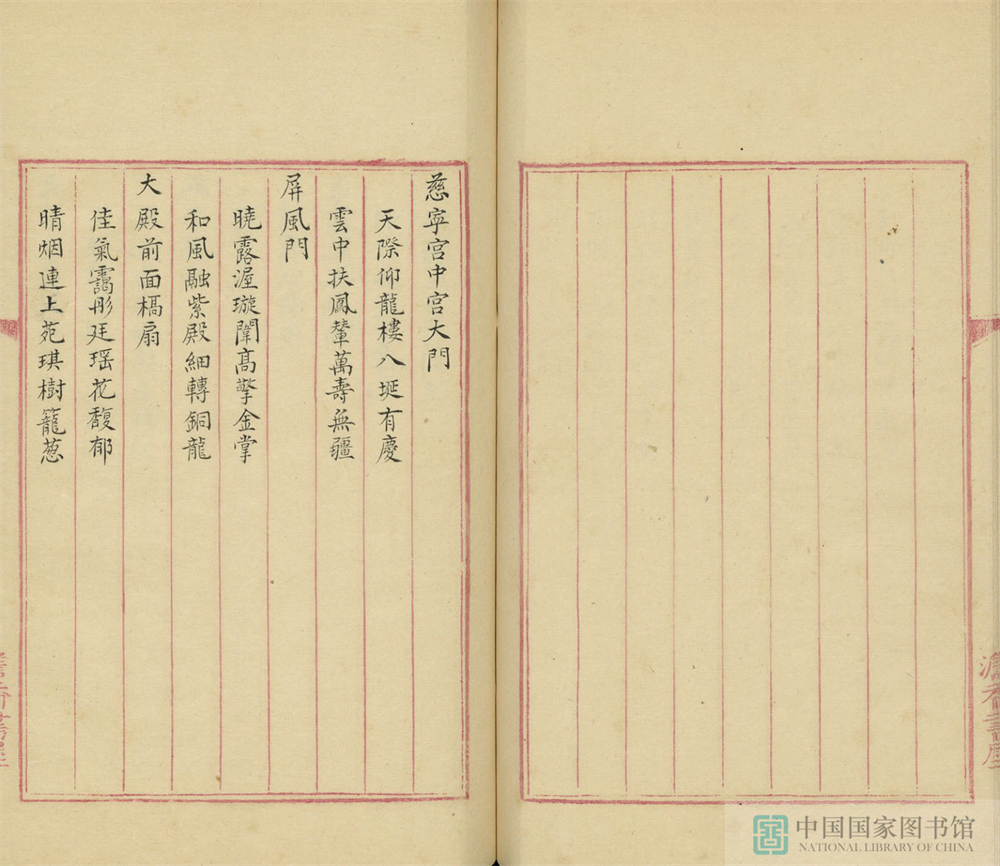 慈寜宫中宫大門
天際仰龍樓八埏有慶
雲中扶鳳輦萬壽無疆
屏風門
曉露渥璇闈高擎金掌
和風融紫殿細轉銅龍
大殿前面槅扇
佳氣靄彤廷瑶花馥郁
晴烟連上苑琪樹籠葱
中国国家图书馆
NATIONAL LIBRARY OF CHINA